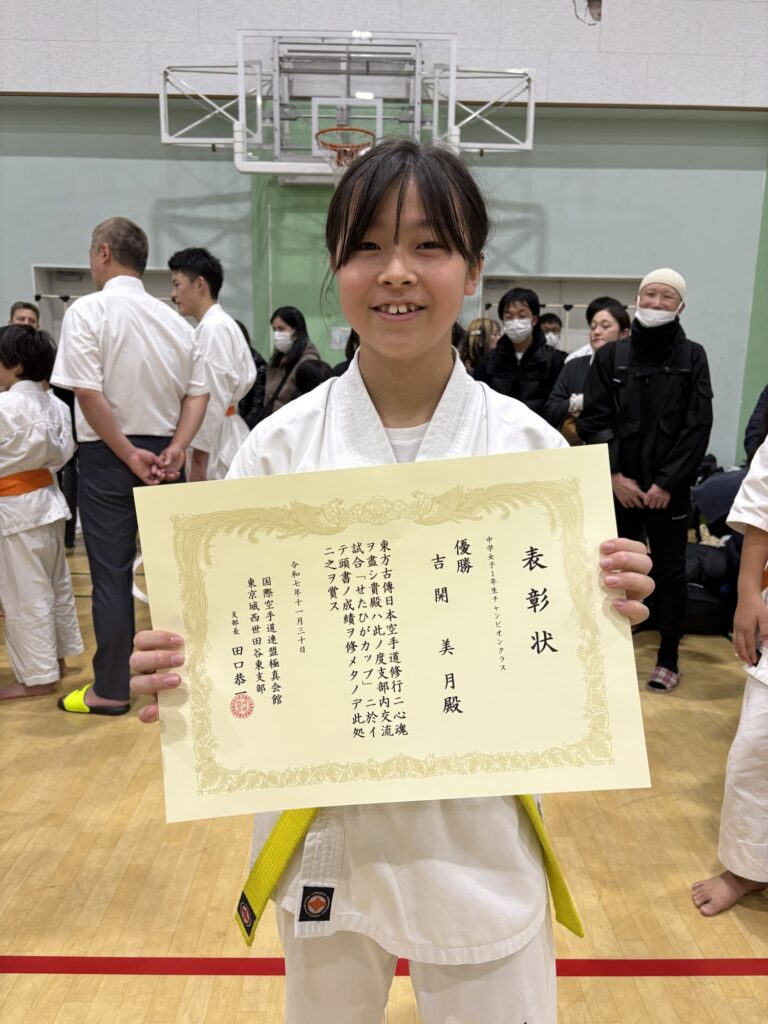 表彰状
中学女子1年生チャンピオンクラス
優勝
吉開美月殿
東方古傳日本空手道修行ニ心魂
ヲ盡シ貴殿ハ此ノ度支部内交流
試合「せたひがカップ」ニ於イ
テ頭書ノ成績ヲ修メタノデ此処
ニ之ヲ賞ス
令和七年十一月三十日
国際空手道連盟極真会館
東京城西世田谷東支部
支部長 田口恭一